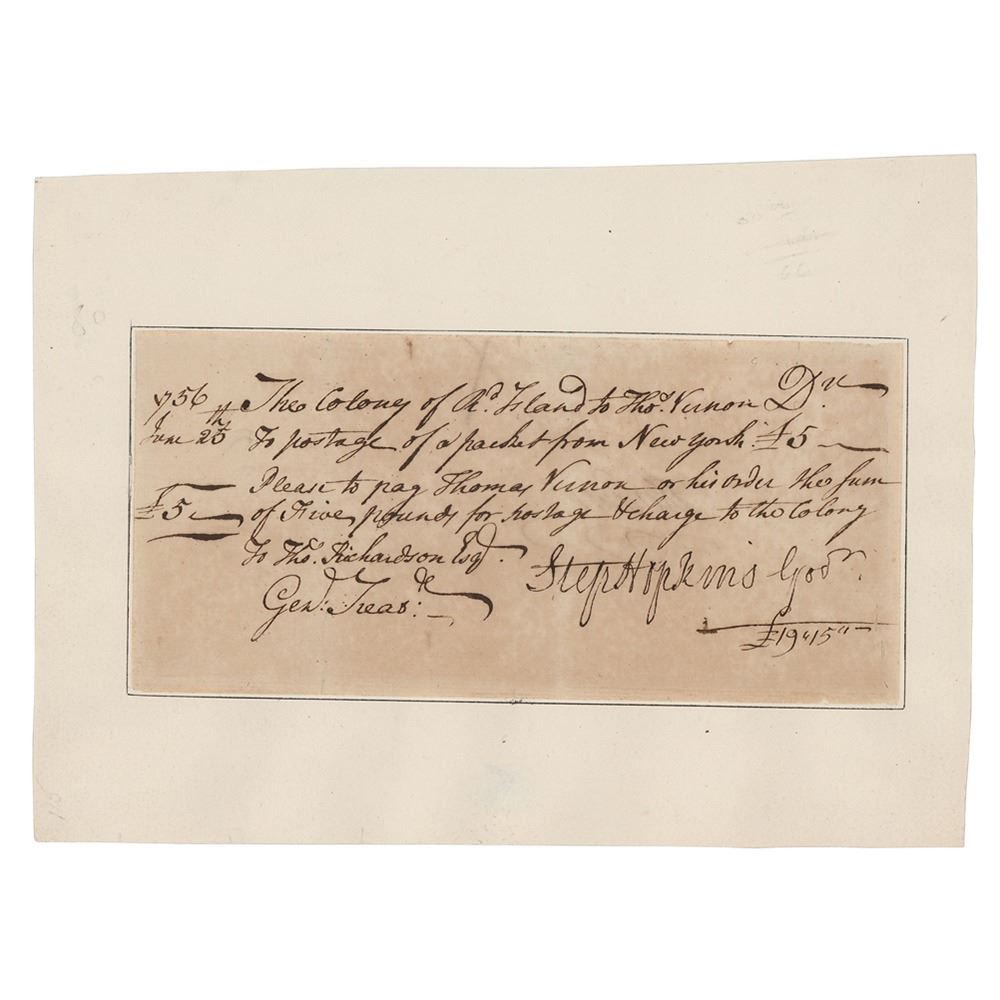 1756 The Colony of Rd. Island to Thos. Vernon Dr.
June 25th To postage of a packet from New york £5
Please to pay Thomas Vernon or his order the sum
£5 of Five pounds for postage & charge to the Colony
To Thos. Richardson Esqr.
Genl. Treasr. Step Hopkins Govr.
£19"15"
80